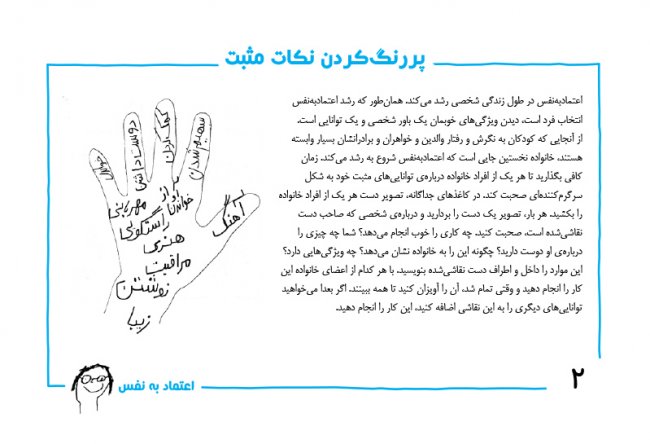 پررنگ‌کردن نکات مثبت
اعتمادبه‌نفس در طول زندگی شخصی رشد می‌کند. همان‌طور که رشد اعتمادبه‌نفس
انتخاب فرد است، دیدن ویژگی‌های خوبمان یک باور شخصی و یک توانایی است.
از آنجایی که کودکان به نگرش و رفتار والدین و خواهران و برادرانشان بسیار وابسته
هستند، خانواده نخستین جایی است که اعتمادبه‌نفس شروع به رشد می‌کند. زمان
کافی بگذارید تا هر یک از افراد خانواده درباره‌ی توانایی‌های مثبت خود به شکل
سرگرم‌کننده‌ای صحبت کند. در کاغذهای جداگانه، تصویر دست هر یک از افراد خانواده
را بکشید. هر بار، تصویر یک دست را بردارید و درباره‌ی شخصی که صاحب دست
نقاشی‌شده است، صحبت کنید. چه کاری را خوب انجام می‌دهد؟ شما چه چیزی را
درباره‌ی او دوست دارید؟ چگونه این را به خانواده نشان می‌دهد؟ چه ویژگی‌هایی دارد؟
این موارد را داخل و اطراف دست نقاشی‌شده بنویسید. با هر کدام از اعضای خانواده این
کار را انجام دهید و وقتی تمام شد، آن را آویزان کنید تا همه ببینند. اگر بعدا می‌خواهید
توانایی‌های دیگری را به این نقاشی اضافه کنید، این کار را انجام دهید.
دوست داشتن
کمک کردن
سهیم شدن
مهربانی
آواز
خواندن
آهنگ
راستگویی
هنری
مراقبت
نوشتن
زیبا
اعتماد به نفس
۲